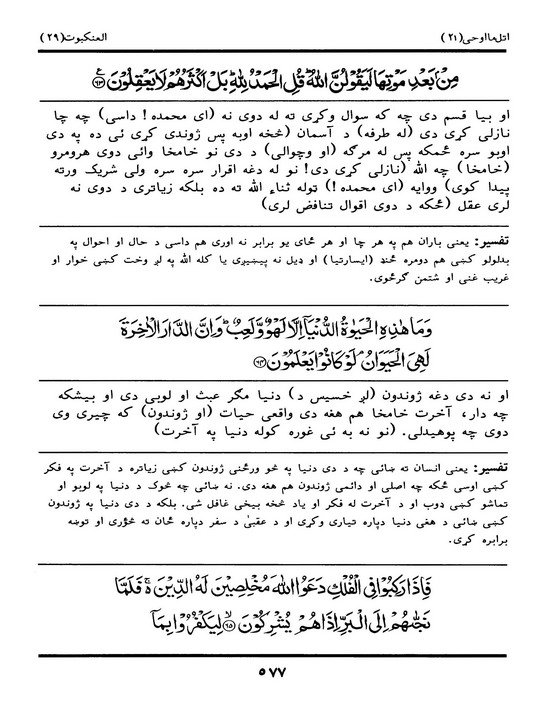 اتل ما اوحی (۲۱) العنکبوت (۲۹)
مِنْۢ بَعْدِ مَوْتِهَا لَيَقُوْلُنَّ اللّٰهُ ؕ قُلِ الْحَمْدُ لِلّٰهِ ؕ بَلْ اَكْثَرُهُمْ لَا يَعْقِلُوْنَ ﴿۶۳﴾
او بیا قسم دی چه که سوال وکړی ته له دوی نه (ای محمده! داسی) چه چا
نازلی کړی دی (له طرفه) د آسمان (څخه اوبه پس ژوندی کړی ئی ده په دی
اوبو سره ځمکه پس له مرگه (او وچوالی) د دی نو خامخا وائی دوی هرومرو
(خامخا) چه الله (نازلی کړی دی! نو له دغه اقرار سره سره ولی شریک ورته
پیدا کوی) ووایه (ای محمده!) ټوله ثناء الله ته ده بلکه زیاتری د دوی نه
لری عقل (ځکه د دوی اقوال تناقض لری)
تفسیر: یعنی باران هم په هر چا او هر ځای یو برابر نه اوری هم داسی د حال او احوال په
بدلولو کښی هم دومره ځنډ (ایسارتیا) او ډیل نه پیښیږی یا کله الله په لږ وخت کښی خوار او
غریب غنی او شتمن گرځوی.
وَمَا هٰذِهِ الْحَيٰوةُ الدُّنْيَاۤ اِلَّا لَهْوٌ وَّلَعِبٌ ؕ وَاِنَّ الدَّارَ الْاٰخِرَةَ
لَهِيَ الْحَيَوَانُ ۘ لَوْ كَانُوْا يَعْلَمُوْنَ ﴿۶۴﴾
او نه دی دغه ژوندون (لږ خسیس د) دنیا مگر عبث او لوبی دی او بیشکه
چه دار، آخرت خامخا هم هغه دی واقعی حیات (او ژوندون) که چیری وی
دوی چه پوهیدلی. (نو نه به ئی غوره کوله دنیا په آخرت)
تفسیر: یعنی انسان ته ښائی چه د دی دنیا په څو ورځنی ژوندون کښی زیاتره د آخرت په فکر
کښی اوسی ځکه چه اصلی او دائمی ژوندون هم هغه دی. نه ښائی چه څوک د دنیا په لوبو او
تماشو کښی ډوب او د آخرت له فکر او یاد څخه بیخی غافل شی. بلکه د دی دنیا په ژوندون
کښی ښائی د هغی دنیا دپاره تیاری وکړی او د عقبیٰ د سفر دپاره ځان ته څوړی او توښه
برابره کړی.
فَاِذَا رَكِبُوْا فِي الْفُلْكِ دَعَوُا اللّٰهَ مُخْلِصِيْنَ لَهُ الدِّيْنَ ۬ۚ فَلَمَّا
نَجّٰىهُمْ اِلَى الْبَرِّ اِذَا هُمْ يُشْرِكُوْنَ ﴿۶۵﴾ لِيَكْفُرُوْا بِمَاۤ
۵۷۷